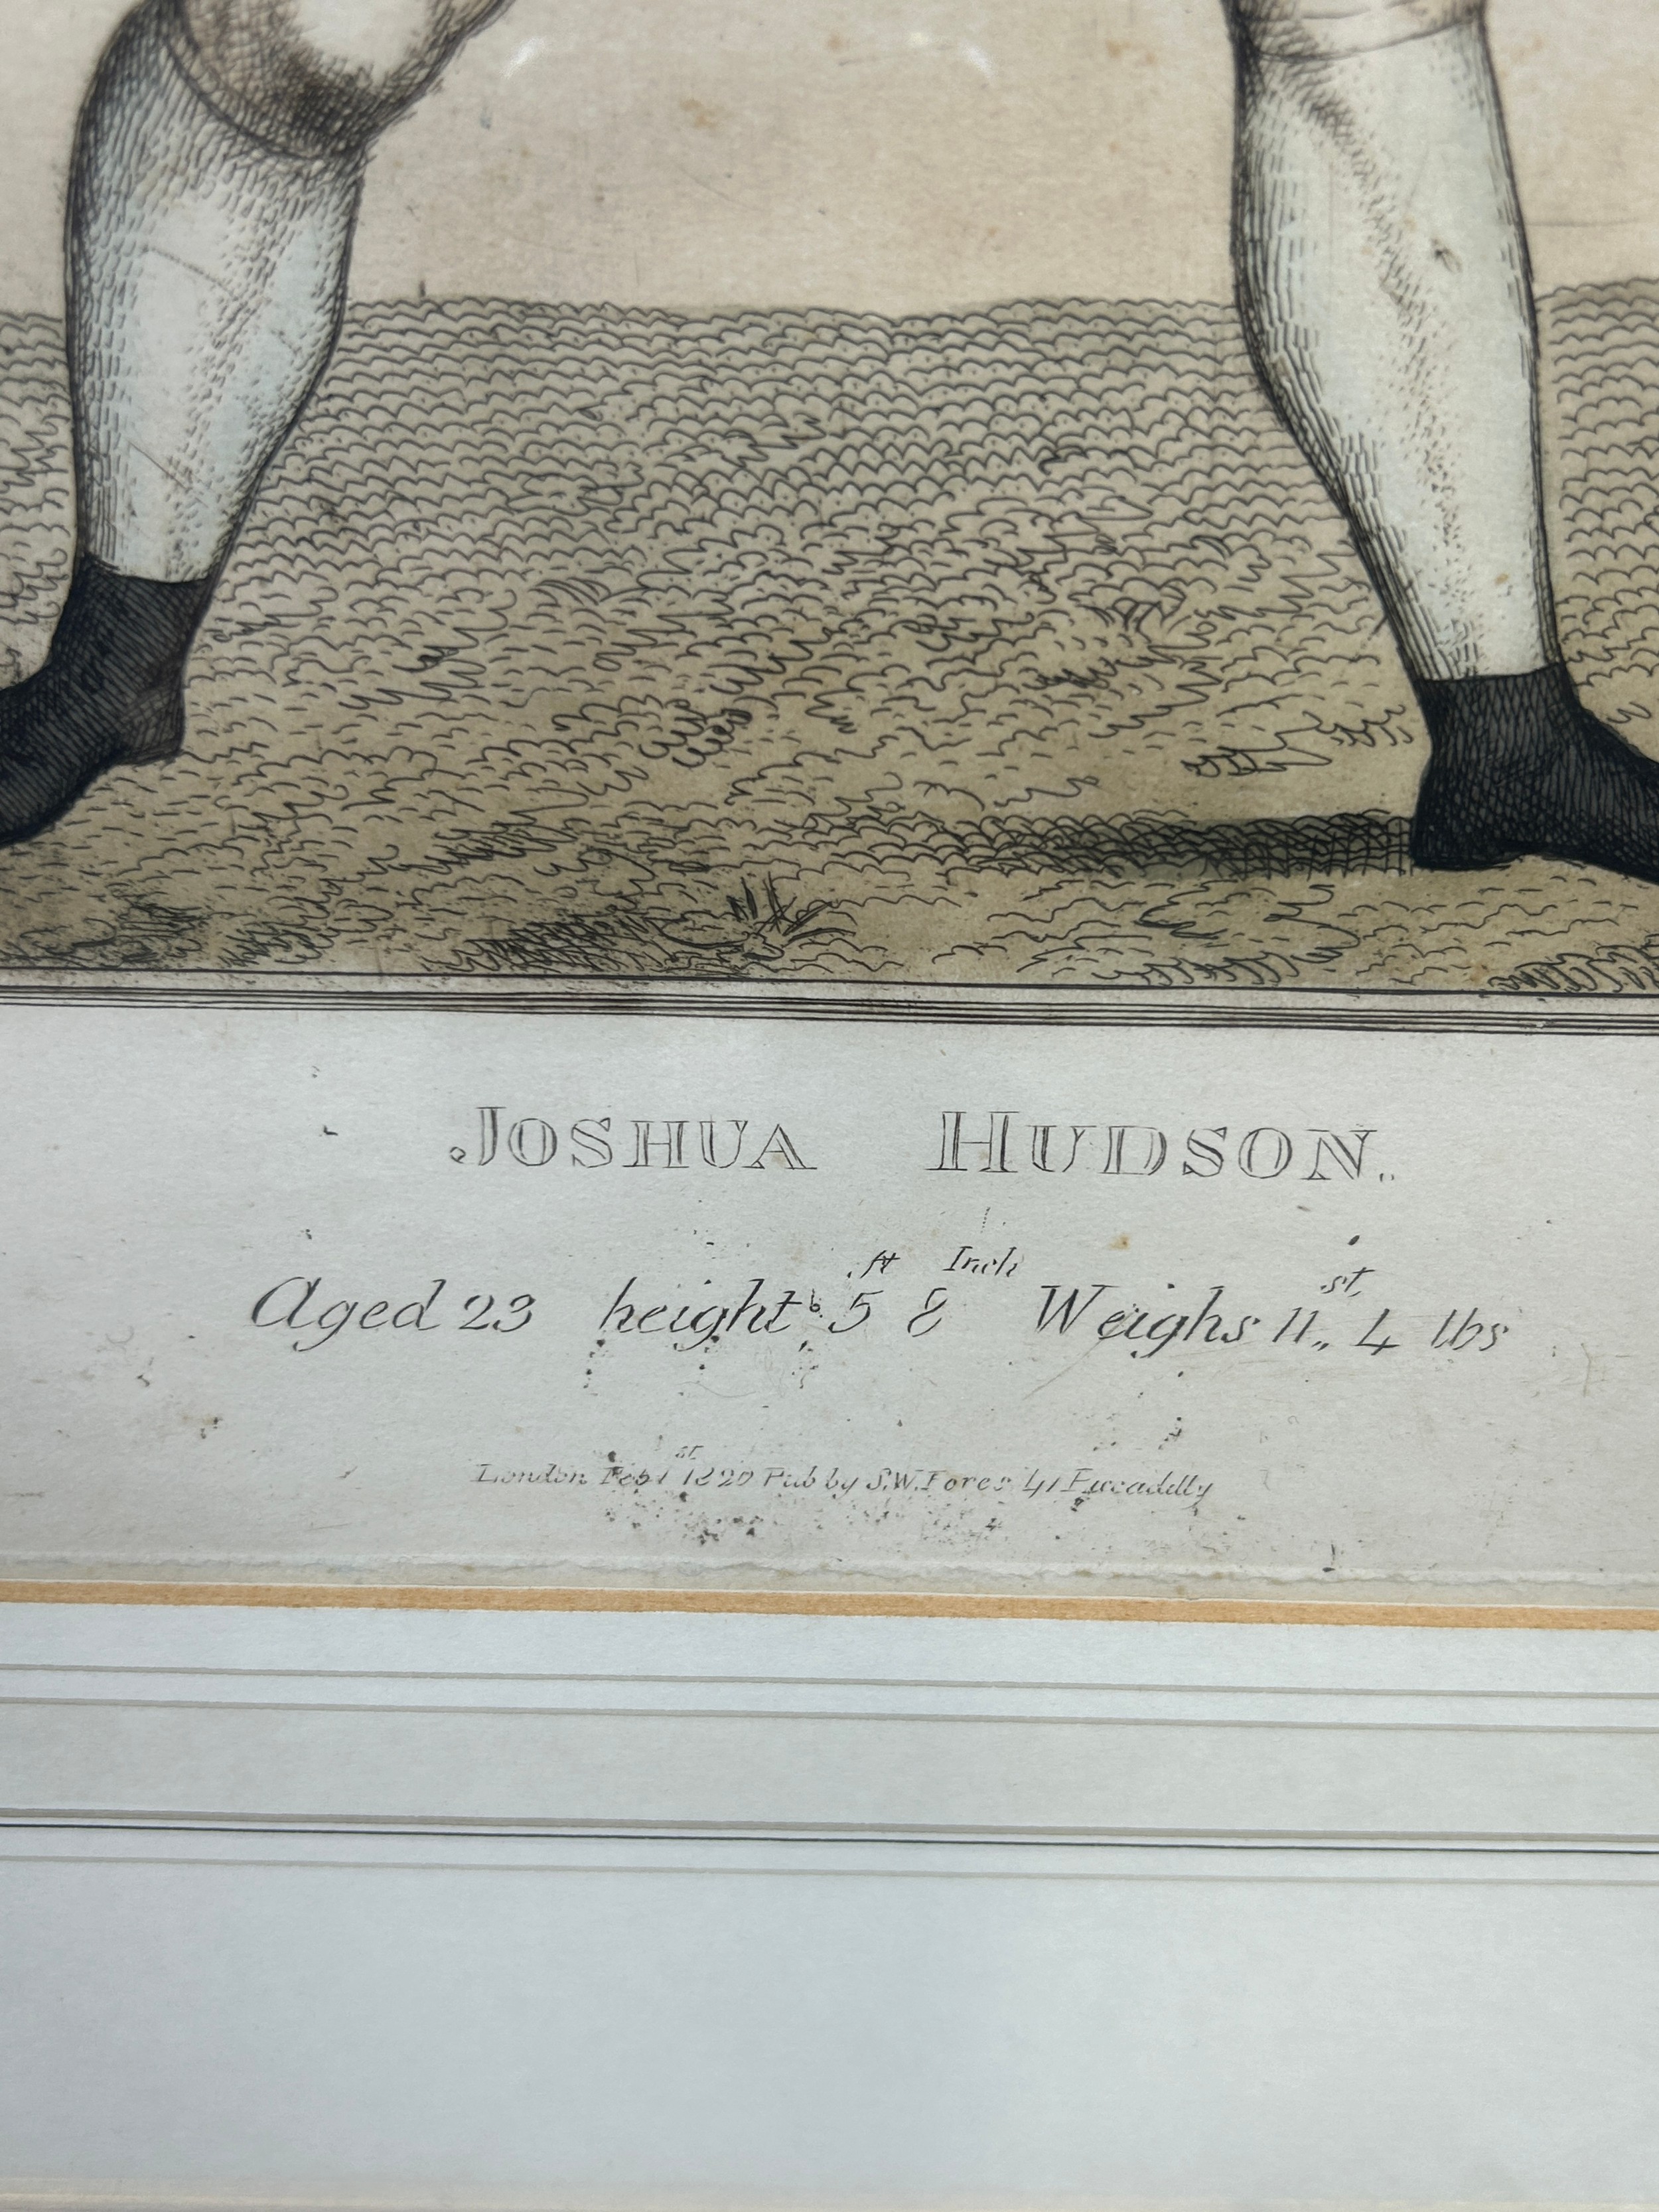 JOSHUA HUDSON.
Aged 23 height 5 ft 8 Inch Weighs 11 st, 4 lbs
London Feb 1 st 1820 Pub by S.W. Fores 41 Piccadilly